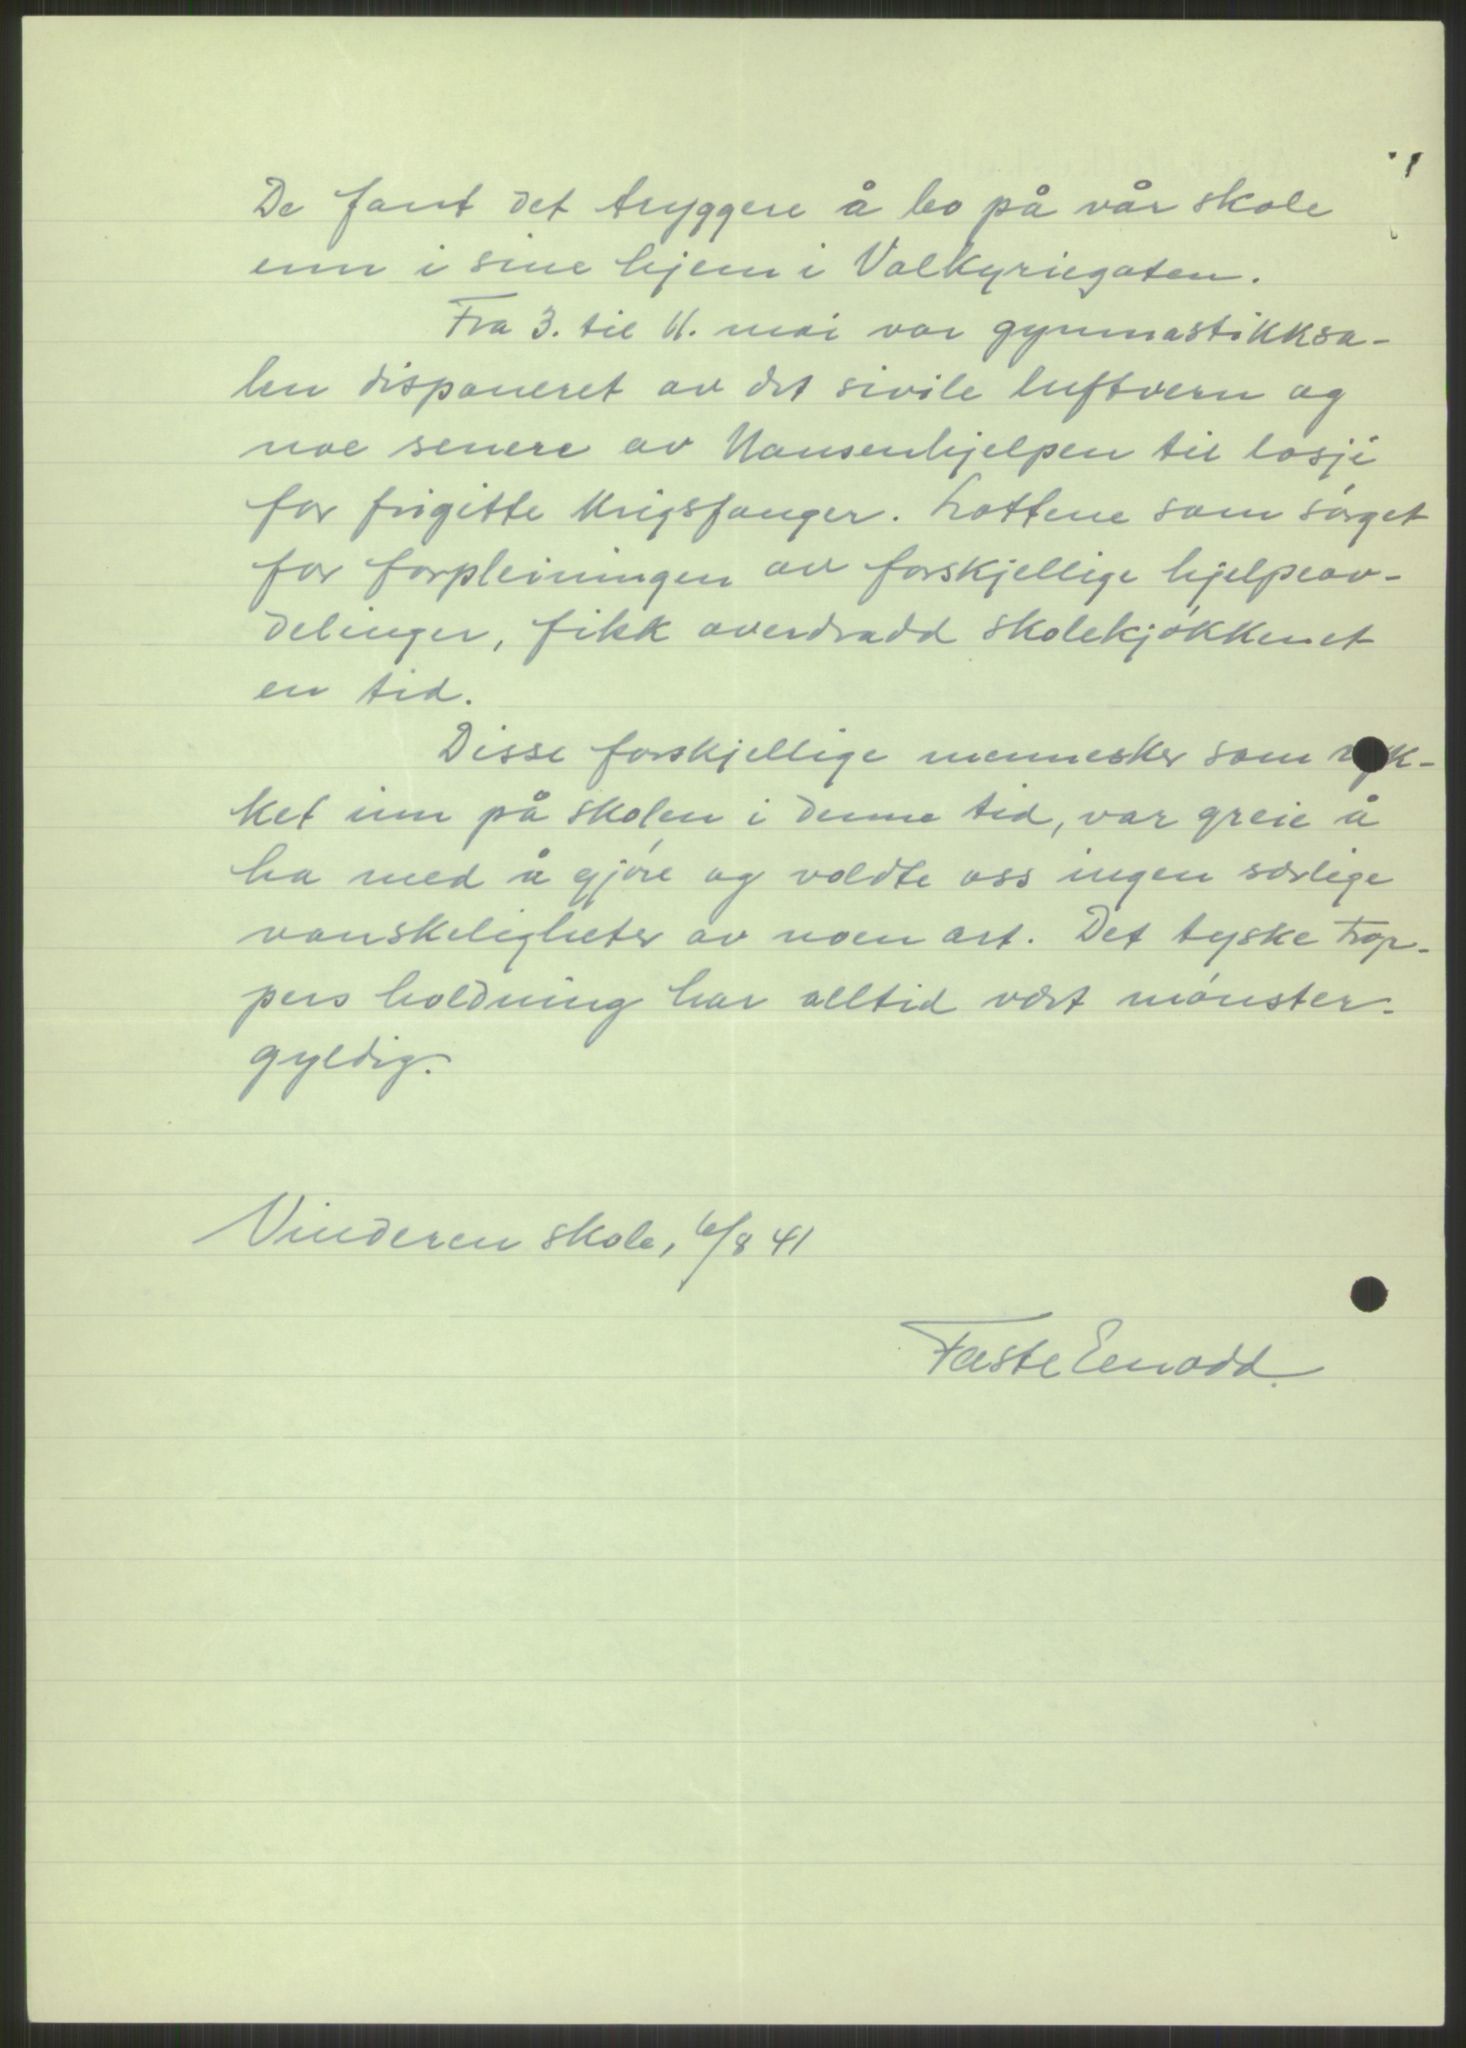 De fant det tryggere å bo på vår skole
enn i sine hjem i Valkyriegaten.
Fra 3. til 11. mai var gymnastikksa-
len disponeret av det sivile luftvern og
noe senere av Nansenhjelpen til losji
for frigitte krigsfanger. Lottene som sørget
for forpleiningen av forskjellige hjelpeav-
delinger, fikk overdradd skolekjøkkenet
en tid.
Disse forskjellige mennesker som ryk-
ket inn på skolen i denne tid, var greie å
ha med å gjøre og voldte oss ingen særlige
vanskeligheter av noen art. Det tyske trop-
pers holdning har alltid vært mønster-
gyldig.
Vinderen skole, 6/8 41